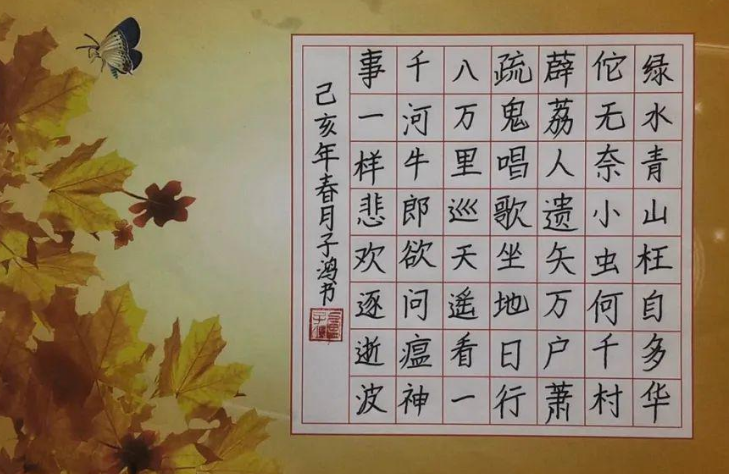 绿水青山枉自多华
佗无奈小虫何千村
薜荔人遗矢万户萧
疏鬼唱歌坐地日行
八万里巡天遥看一
千河牛郎欲问瘟神
事一样悲欢逐逝波
己亥年春月子鸿书